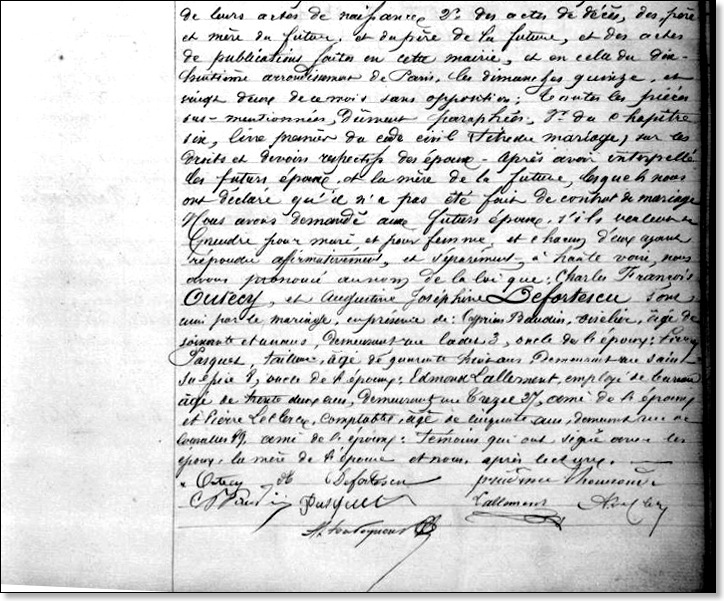 de leurs actes de naissance 2° des actes de décès, des père
et mère du futur, et du père de la future, et des actes
de publications faites en cette mairie, et en celle du dix-
huitième arrondissement de Paris, les dimanches quinze, et
vingt deux de ce mois sans opposition; toutes les pièces
sus-mentionnées, dûment paraphées, 3° du chapitre
six, livre premier du code civil (titre du mariage), sur les
droits et devoirs respectifs des époux - Après avoir interpellé
les futurs époux, et la mère de la future, lesquels nous
ont déclaré qu'il n'a pas été fait de contrat de mariage
Nous avons demandé aux futurs époux, s'ils veulent se
prendre pour mari, et pour femme, et chacun d'eux ayant
répondu affirmativement, et séparément, à haute voix, nous
avons prononcé au nom de la loi que: Charles François
Outecy, et Augustine Joséphine Defortescu sont
unis par le mariage, en présence de: Cyprien Baudin, âgé de
soixante et un ans, demeurant rue 3, oncle de l'époux:
Pasquet, tailleur, âgé de quarante trois ans demeurant rue saint
sulpice 8, oncle de l'époux; Edmond Lallement, employé de bureau
âgé de trente deux ans, demeurant rue 37, ami de l'époux
et Pierre Leclercq, comptable, âgé de cinquante ans, demeurant rue de
19, ami de l'époux: Témoins qui ont signé avec les
époux, la mère de l'épouse et nous, après lecture.
Outecy A Defortescu prudence
Pasquet Lallement